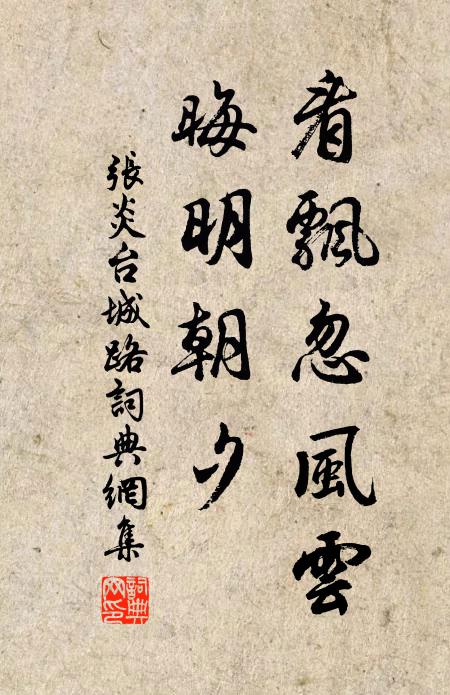 看飄忽風雲
晦明朝夕
張炎台城路詞典網集
詞典網印